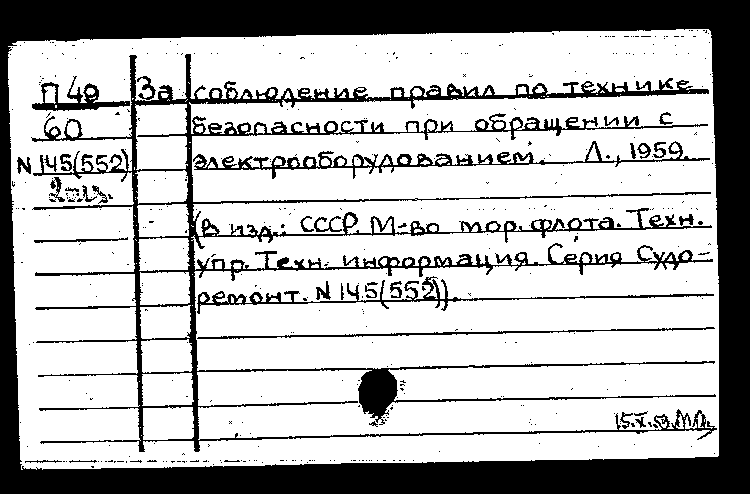 П 49 За соблюдение правил по технике
60 безопасности при обращении с
N 145(552) электрооборудованием. Л., 1959.
2 экз.
(В изд.: СССР. М-во мор. флота. Техн.
упр. Техн. информация. Серия Судо-
ремонт. N 145(552)).
15.X.59.